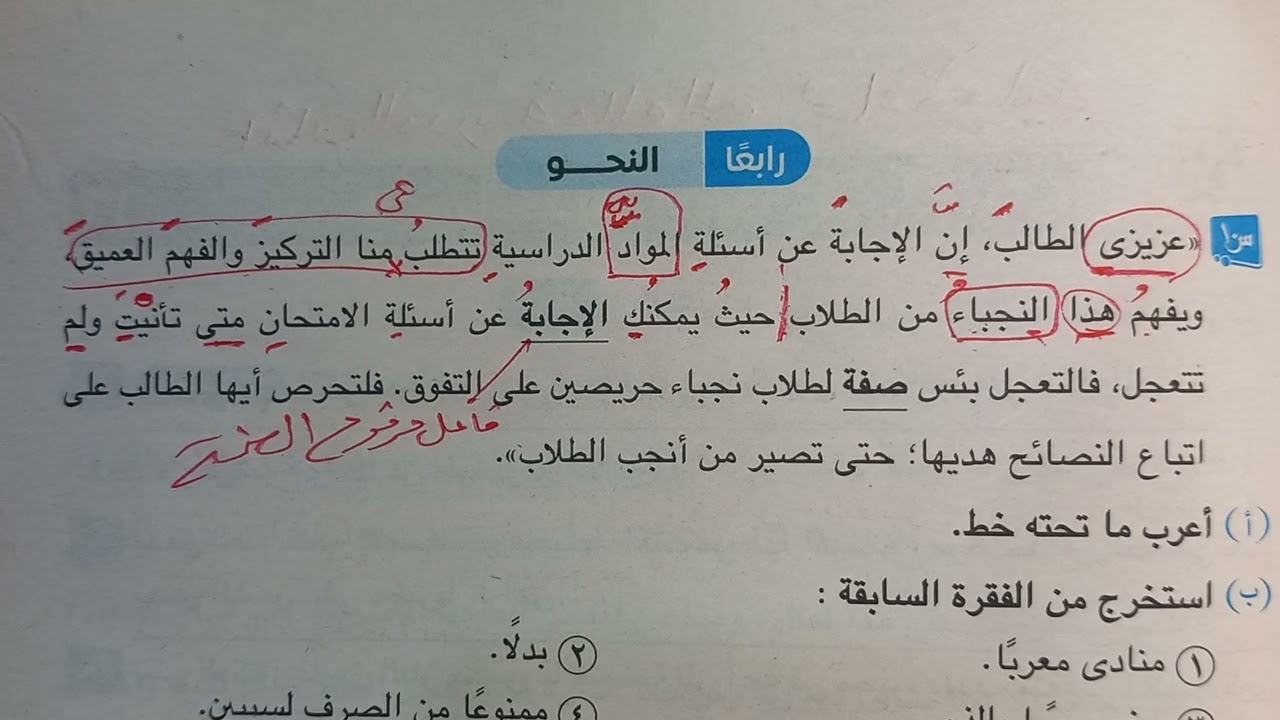 رابعًا النحـــو
س١ «عزيزى الطالب، إن الإجابة عن أسئلة المواد الدراسية تتطلب منا التركيز والفهم العميق،
ويفهم هذا النجباء من الطلاب حيث يمكنك الإجابة عن أسئلة الامتحان متى تأنيت ولم
تتعجل، فالتعجل بئس صفة لطلاب نجباء حريصين على التفوق. فلتحرص أيها الطالب على
فاعل مرفوع
اتباع النصائح هديها؛ حتى تصير من أنجب الطلاب».
(أ) أعرب ما تحته خط.
(ب) استخرج من الفقرة السابقة :
١ منادى معربًا. ٢ بدلًا.
٤ ممنوعًا من الصرف لسببين.